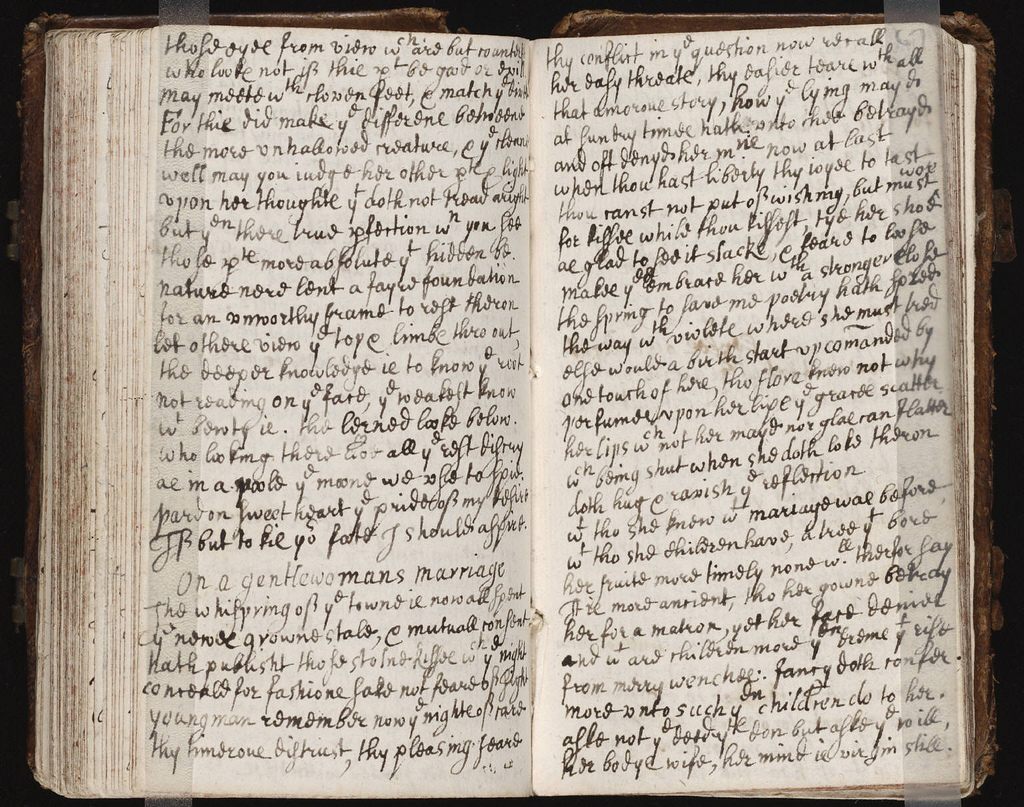 those eyes from view wch are but counted
who looke not, if this pt be good or evill
may meete wth cloven feet, & match ye devill
For this did make ye difference betweene
the more unhallowed creature, & ye cleane
well may you iudge her other pts & light
vpon her thoughts yt doth not tread aright
but yen there true pfection wn you see
those pts more absolute yt hidden be.
nature nere lent a fayre foundation
for an vnworthy frame to rest theron
let others view ye top & limbs throout,
the deeper knowledge is to know ye root
not reading on ye face, ye weakest know
wt bewty is. the lerned looke below.
who looking there doe all ye rest discry
as in a poole ye moone we vse to spie.
pardon sweet heart ye pride of my desire
If but to kis yor foote I should aspire.
On a gentlewomans marriage
The whispring of ye towne is now all spent
ye newes growne stale, & mutuall consent
hath publisht those stolne kisses wch ye night
conceald for fashions sake not feare of sight
young man remember now ye nights of care
thy timerous distrust, thy pleasing feare
thy conflict in ye question now recall
her easy threats, thy easier teares wth all
that amorous story, how ye lying may do
at sundry times hath vnto thee betrayd
and oft denyd her now at last
when thou hast liberty thy ioyes to tast
thou canst not put of wishing, but must woo
for kisses while thou kissest, tye her shoe
as glad to see it slacke, & feare to loose
makes ye embrace her wth a stronger close
the spring to save me poetry hath spred
the way wth violets where she must tred
else would a birth start vp comanded by
one touch of hers, tho flora knew not why
perfumes vpon her lipps ye graces scatter
her lips wch not her mayds nor glas can flatter
wch being shut when she doth looke theron
doth hug & ravish ye reflection
wt tho she knew wt mariage was before
wt tho she children have, a tree yt bore
her fruite more timely none will therfor say
Tis more ancient, tho her gowne betray
her for a matron, yet her face denies
and wt are children more yen dremes yt rise
from merry wenches: fancy doth confer
more vnto such yen children do to her.
aske not ye deed yts don but aske ye will,
her bodys wife, her mind is virgin still.